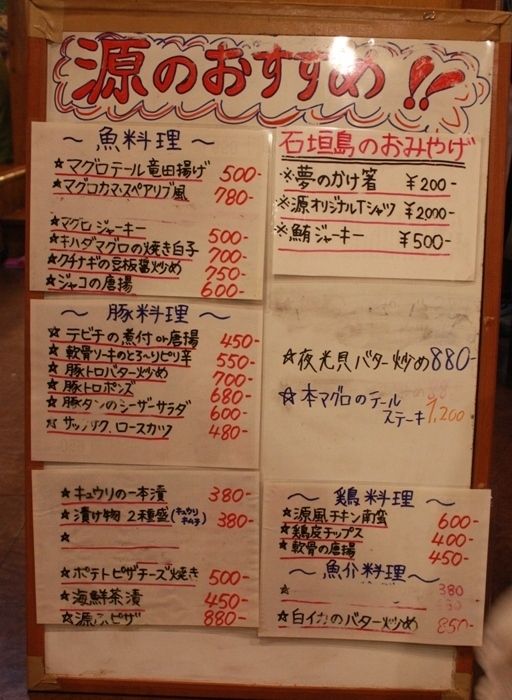 源のおすすめ!!
~ 魚料理 ~
★マグロテール竜田揚げ 500-
★マグロカマ・スペアリブ風 780-
★マグロジャーキー 500-
★キハダマグロの焼き白子 700-
★クチナギの豆板醤炒め 750-
★ジャコの唐揚 600-
~ 豚料理 ~
★テビチの煮付or唐揚 450-
★軟骨ソーキのとろ~りピリ辛 550-
★豚トロバター炒め 700-
★豚トロポンズ 680-
★豚タンのシーザーサラダ 600-
ロースカツ 480-
★キュウリの一本漬 380-
★漬け物 2種盛(キュウリ キムチ) 380-
★
★ポテトピザチーズ焼き 500-
★海鮮茶漬 450-
★源ふピザ 880-
石垣島のおみやげ
※夢のかけ箸 ¥200-
※源オリジナルTシャツ ¥2000-
※鮪ジャーキー ¥500-
☆夜光貝バター炒め880-
☆本マグロのテール
ステーキ 1,200
~ 鶏料理 ~
★源風チキン南蛮 600-
★鶏皮チップス 400-
★軟骨の唐揚 450-
~ 魚介料理 ~
380
★白イカのバター炒め 850-